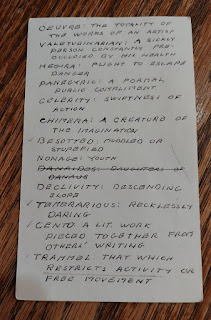 OEUVRE: THE TOTALITY OF
THE WORKS OF AN ARTIST
VALETUDINARIAN: A SICKLY
PERSON CONSTANTLY PRE-
OCCUPIED BY HIS HEALTH
HEGIRA: FLIGHT TO ESCAPE
DANGER
PANEGYRIC: A FORMAL
PUBLIC COMPLIMENT
CELERITY: SWIFTNESS OF
ACTION
CHIMERA: A CREATURE OF
THE IMAGINATION
BESOTTED: MUDDLED OR
STUPEFIED
NONAGE: YOUTH
DANAIDES: DAUGHTERS OF
DANAUS
DECLIVITY: DESCENDING
SLOPE
TEMERARIOUS: RECKLESSLY
DARING
CENTO A LIT. WORK
PIECED TOGETHER FROM
OTHERS' WRITING
TRAMMEL THAT WHICH
RESTRICTS ACTIVITY OR
FREE MOVEMENT